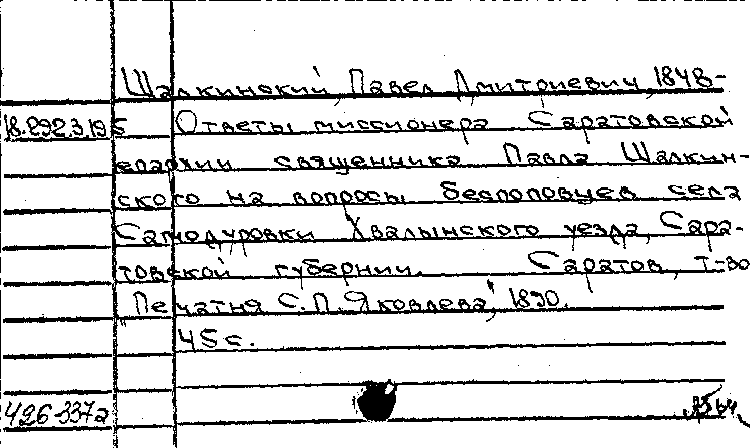 Шалкинский, Павел Дмитриевич, 1848-
18.292.3.195 Ответы миссионера Саратовской
епархии священника Павла Шалкин-
ского на вопросы беспоповцев села
Самодуровки Хвалынского уезда, Сара-
товской губернии. Саратов, т-во
"Печатня С.П. Яковлева", 1890.
45 с.
426-337а